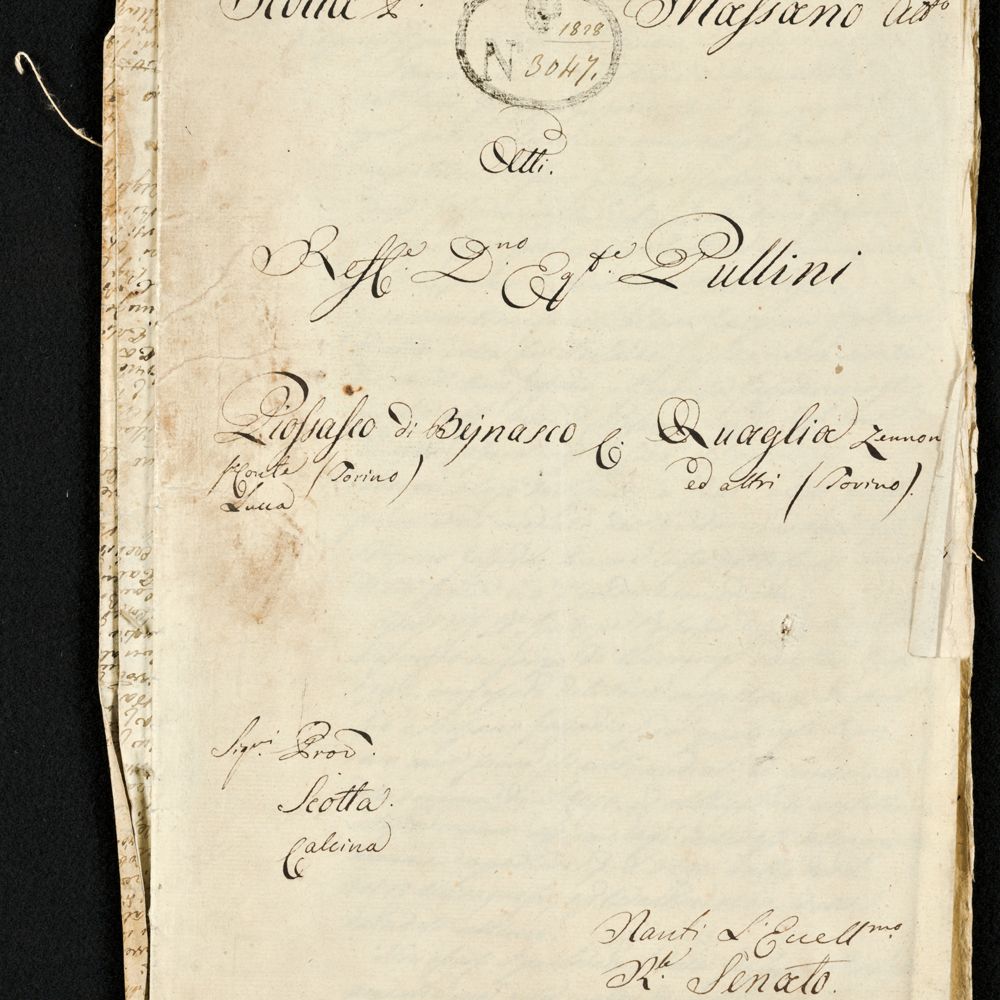 Massano Att.o
1828
N 3047.
Atti.
Ref.e D.no Eq.te Pullini
Piossasco di Bejnasco C. Quaglia Zennon
Conte (Torino) ed altri (Torino).
Luca
Sig.ri Prod.
Scotta.
Calcina
Nanti L'Eccell.mo
R.le Senato.